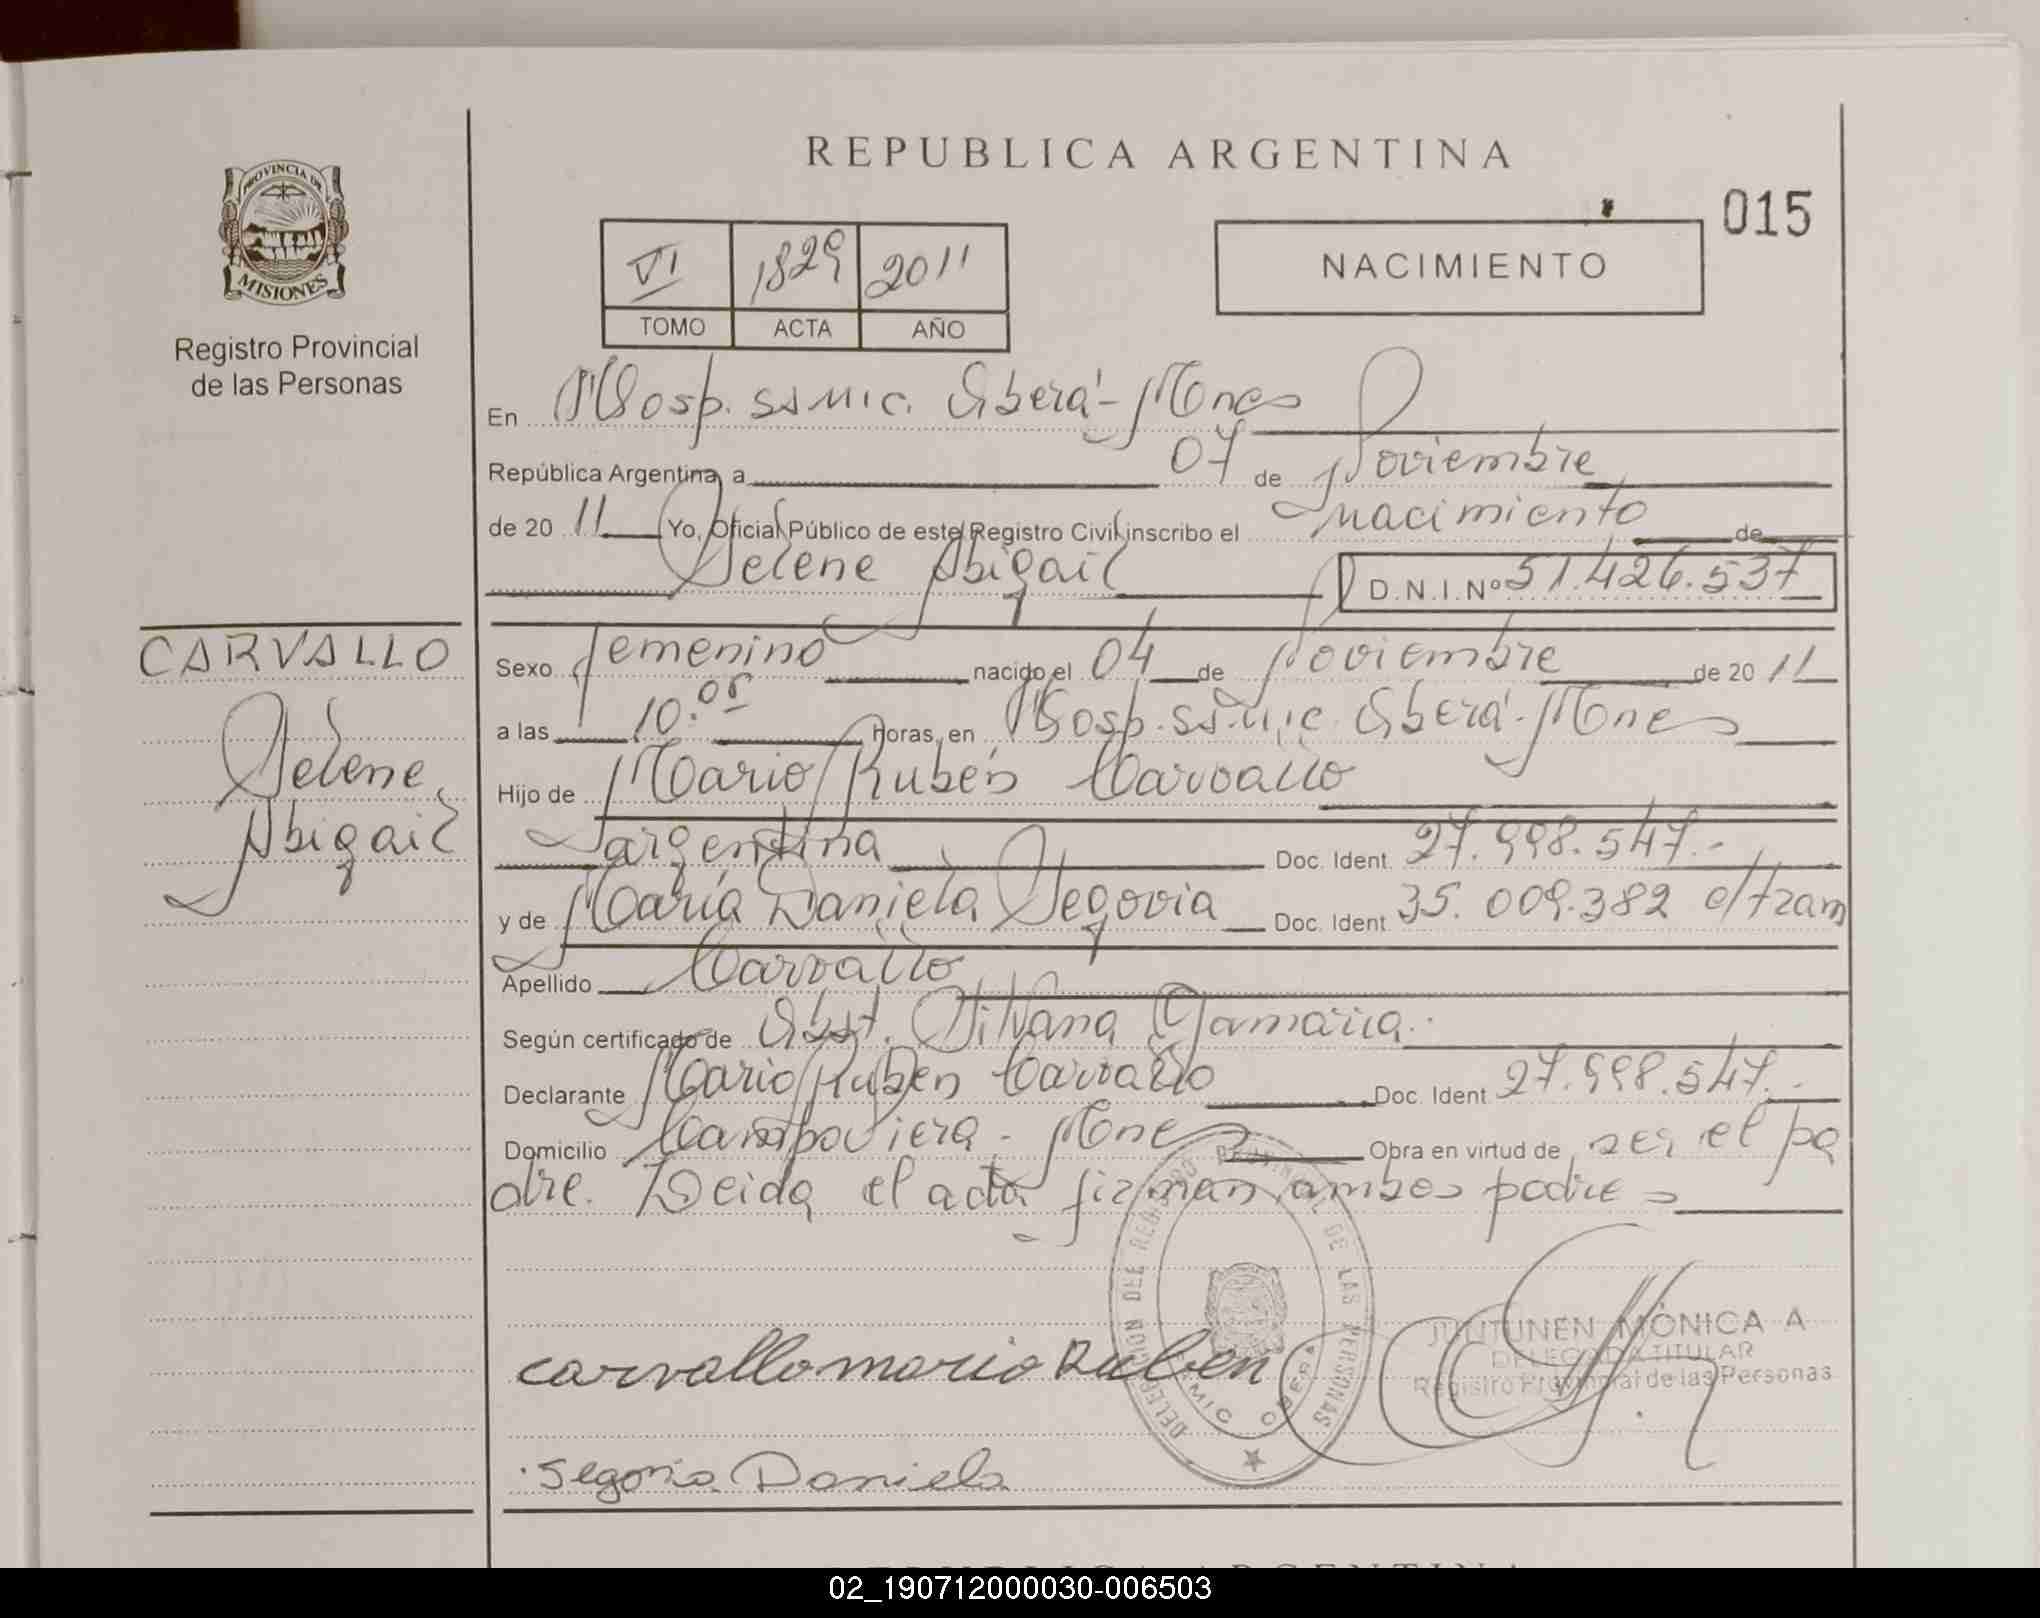 REPUBLICA ARGENTINA
015
PROVINCIA DE
MISIONES
Registro Provincial
de las Personas
VI 1829 2011
TOMO ACTA AÑO
NACIMIENTO
En Hosp. SSMIC. Oberá - Mnes
República Argentina, a 07 de Noviembre
de 20 11 Yo, Oficial Público de este Registro Civil inscribo el nacimiento de
Selene Abigail D.N.I.Nº 51.426.537
CARVALLO
Selene
Abigail
Sexo femenino nacido el 04 de Noviembre de 20 11
a las 10.05 Horas, en Hosp. SSMIC. Oberá - Mnes
Hijo de Mario Rubén Carvallo
argentina Doc. Ident. 27.998.547.-
y de María Daniela Segovia Doc. Ident. 35.009.382 e/tram
Apellido Carvallo
Según certificado de Obst. Silvana
Declarante Mario Rubén Carvallo Doc. Ident. 27.998.547.-
Domicilio Campo Viera - Mnes Obra en virtud de ser el pa
dre. Leida el acta firman ambos padres
DELEGACION DEL REGISTRO PROVINCIAL DE LAS PERSONAS
OBERA
JUNTUNEN MÓNICA A
DELEGADA TITULAR
Registro Provincial de las Personas
carvallo mario Ruben
Segovia Daniela
REPUBLICA ARGENTINA
02_190712000030-006503